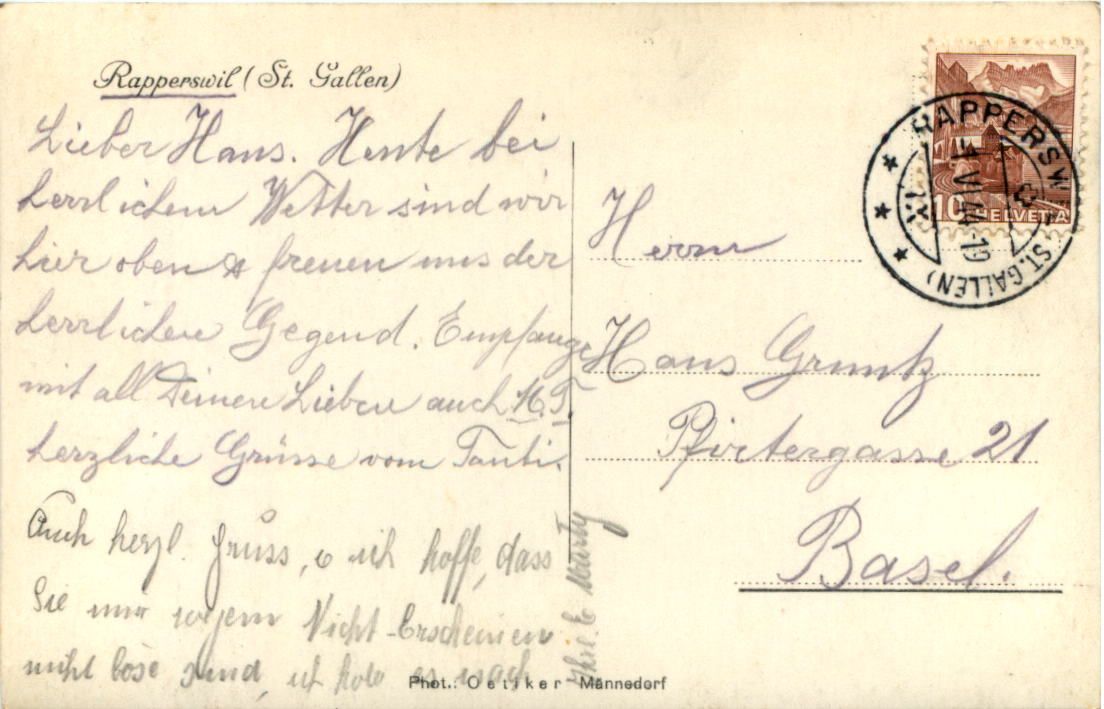 Rapperswil (St. Gallen)
Lieber Hans. Heute bei
herrlichem Wetter sind wir
hier oben & freuen uns der
herrlichen Gegend. Empfange
mit all Deinen Lieben auch M. T.
herzliche Grüsse vom Tanti.
Auch herzl. Gruss, u ich hoffe, dass
Sie mir wegem Nicht-Erscheinen
nicht böse sind, ich hole es nach
Marty
Phot.: Oetiker Männedorf
HELVETIA
10
RAPPERSWIL
(ST. GALLEN)
-1.VI.44-19
Herrn
Hans Gruntz
Pfirtergasse 21
Basel.